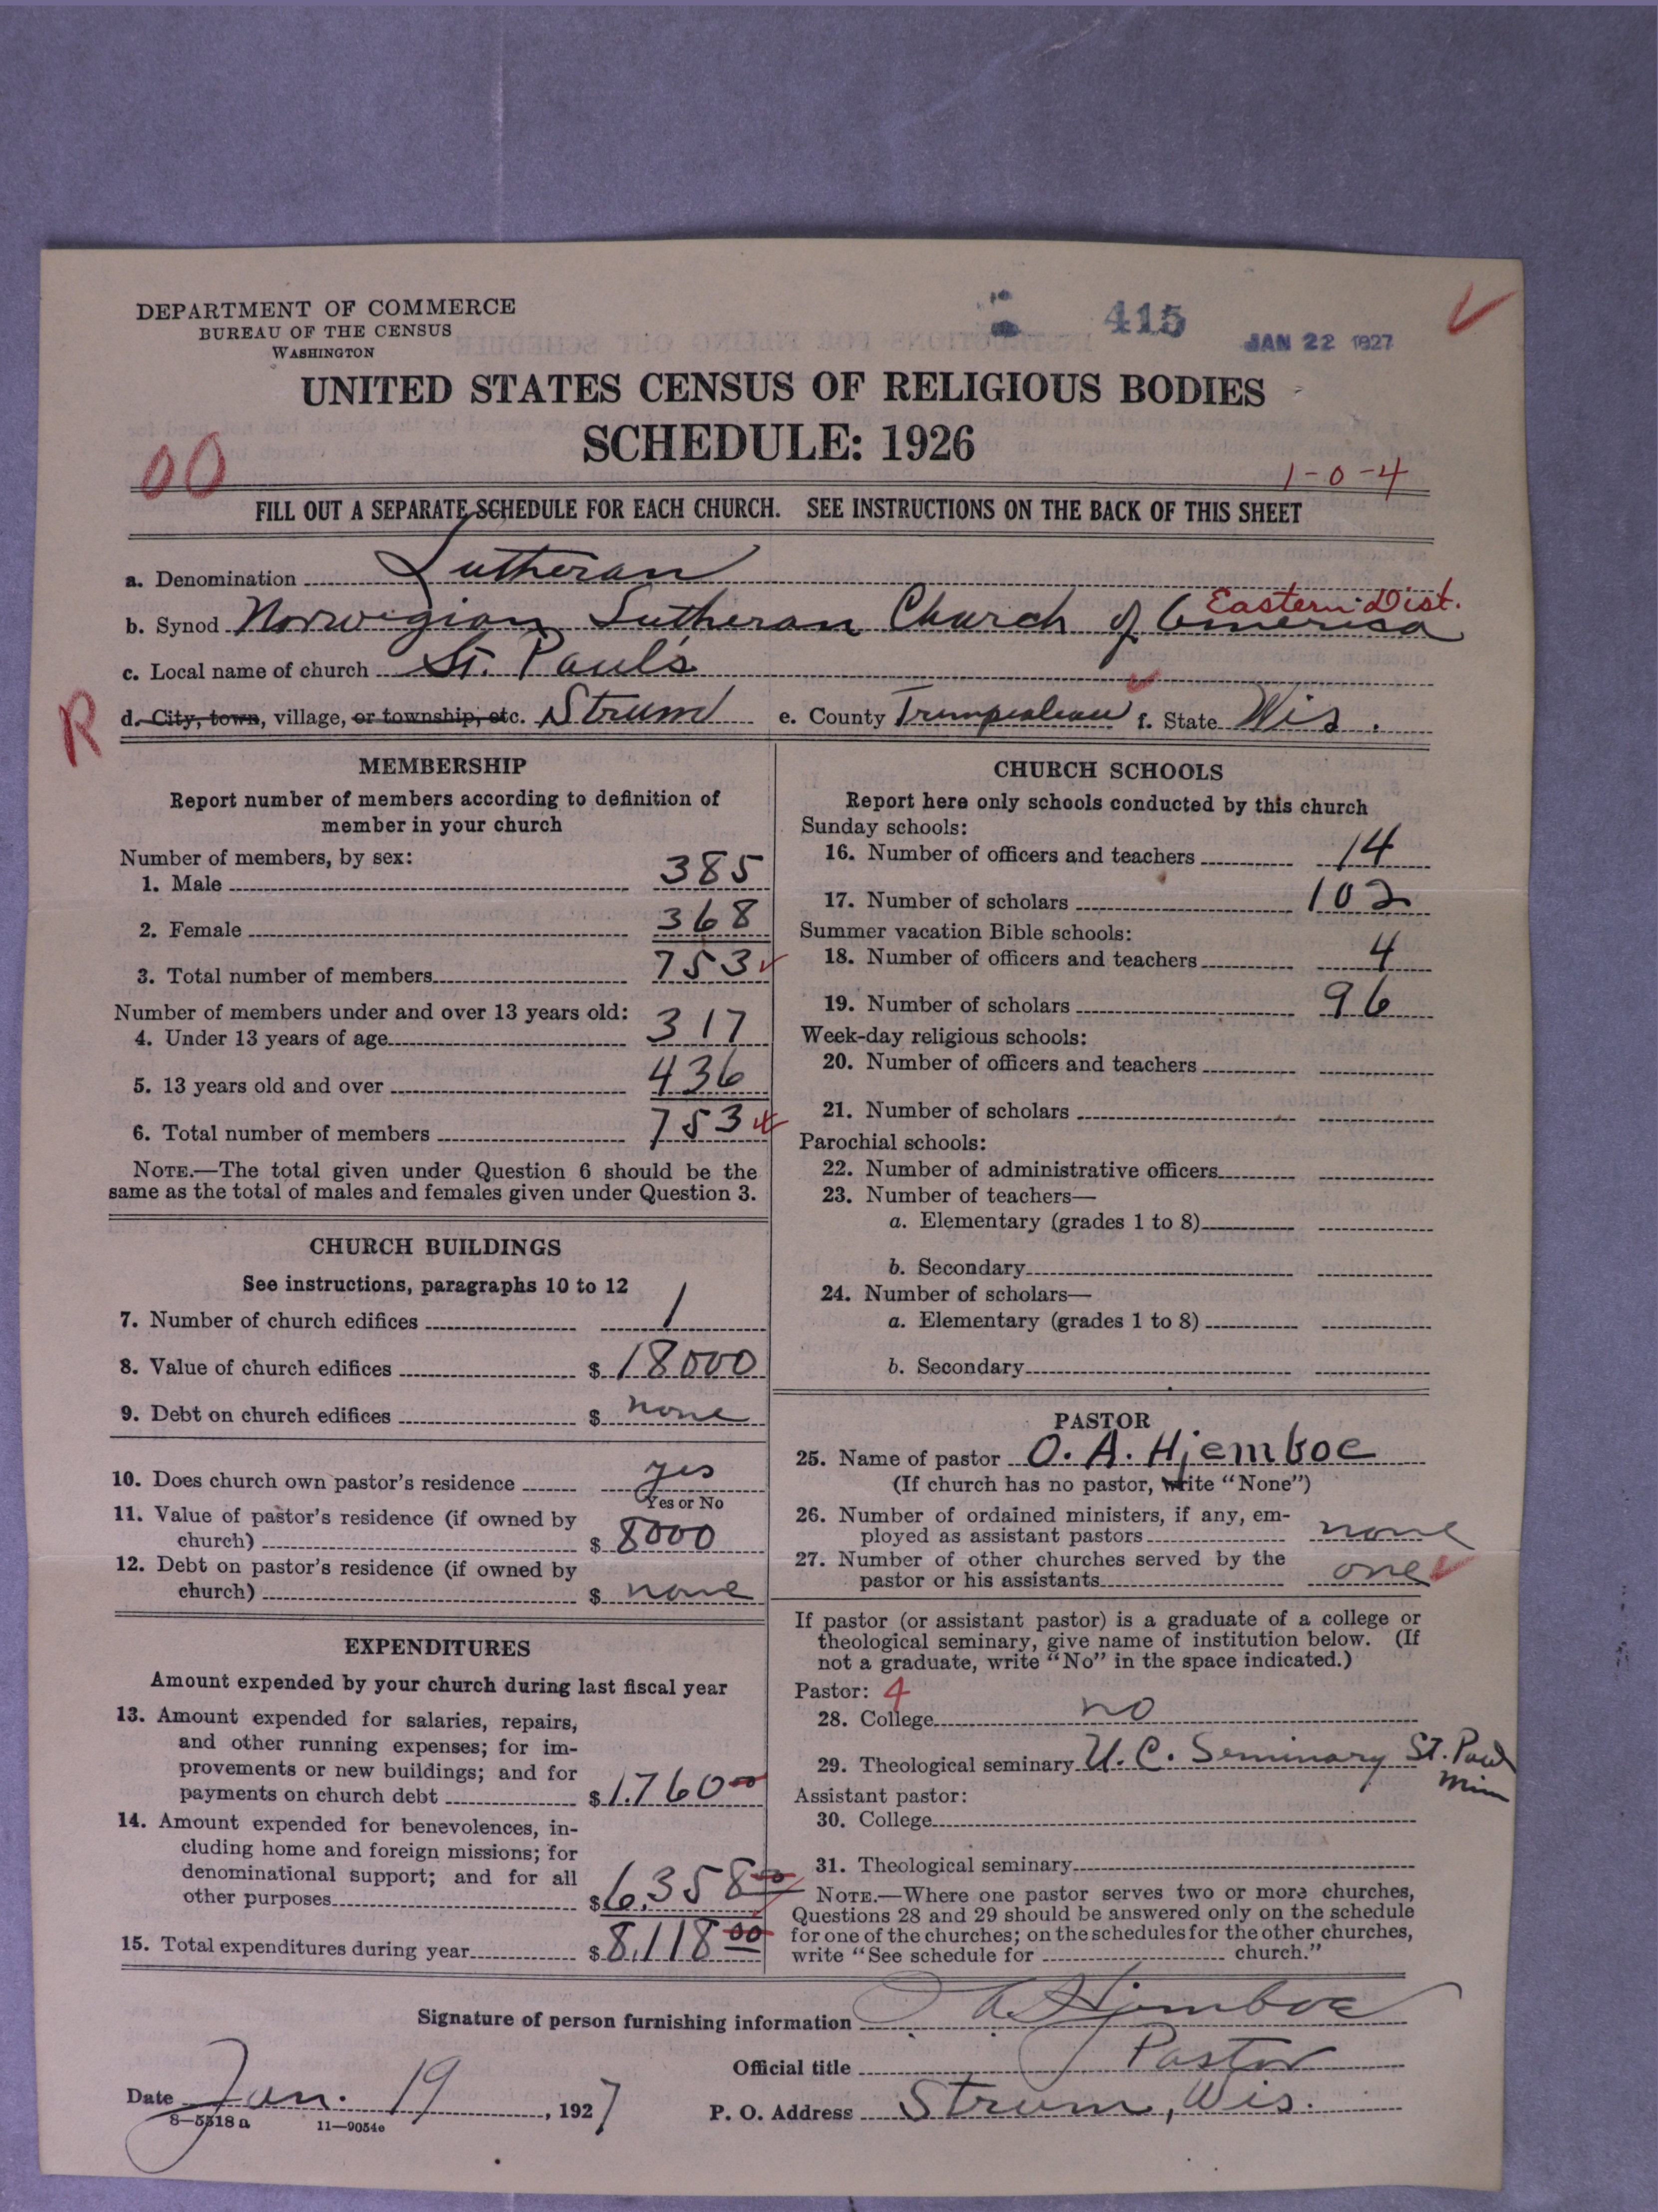 DEPARTMENT OF COMMERCE
BUREAU OF THE CENSUS
WASHINGTON
415
JAN 22 1927
UNITED STATES CENSUS OF RELIGIOUS BODIES
SCHEDULE: 1926
00
1-0-4
FILL OUT A SEPARATE SCHEDULE FOR EACH CHURCH. SEE INSTRUCTIONS ON THE BACK OF THIS SHEET
a. Denomination Lutheran
Eastern Dist.
b. Synod Norwegian Lutheran Church of America
c. Local name of church St. Paul's
R
d. City, town, village, or township, etc. Strum e. County Trempealeau f. State Wis.
MEMBERSHIP
Report number of members according to definition of
member in your church
Number of members, by sex:
1. Male 385
2. Female 368
3. Total number of members 753
Number of members under and over 13 years old:
4. Under 13 years of age 317
5. 13 years old and over 436
6. Total number of members 753
NOTE.—The total given under Question 6 should be the
same as the total of males and females given under Question 3.
CHURCH BUILDINGS
See instructions, paragraphs 10 to 12
7. Number of church edifices 1
8. Value of church edifices $ 18000
9. Debt on church edifices $ none
10. Does church own pastor's residence yes
Yes or No
11. Value of pastor's residence (if owned by
church) $ 8000
12. Debt on pastor's residence (if owned by
church) $ none
EXPENDITURES
Amount expended by your church during last fiscal year
13. Amount expended for salaries, repairs,
and other running expenses; for im-
provements or new buildings; and for
payments on church debt $ 1.760 00
14. Amount expended for benevolences, in-
cluding home and foreign missions; for
denominational support; and for all
other purposes $ 6.358 00
15. Total expenditures during year $ 8,118 00
CHURCH SCHOOLS
Report here only schools conducted by this church
Sunday schools:
16. Number of officers and teachers 14
17. Number of scholars 102
Summer vacation Bible schools:
18. Number of officers and teachers 4
19. Number of scholars 96
Week-day religious schools:
20. Number of officers and teachers
21. Number of scholars
Parochial schools:
22. Number of administrative officers
23. Number of teachers—
a. Elementary (grades 1 to 8)
b. Secondary
24. Number of scholars—
a. Elementary (grades 1 to 8)
b. Secondary
PASTOR
25. Name of pastor O. A. Hjemboe
(If church has no pastor, write "None")
26. Number of ordained ministers, if any, em-
ployed as assistant pastors none
27. Number of other churches served by the
pastor or his assistants one
If pastor (or assistant pastor) is a graduate of a college or
theological seminary, give name of institution below. (If
not a graduate, write "No" in the space indicated.)
Pastor: 4
28. College no
29. Theological seminary U. C. Seminary St. Paul
Minn
Assistant pastor:
30. College
31. Theological seminary
NOTE.—Where one pastor serves two or more churches,
Questions 28 and 29 should be answered only on the schedule
for one of the churches; on the schedules for the other churches,
write "See schedule for church."
Signature of person furnishing information O A Hjemboe
Official title Pastor
Date Jan. 19, 1927 P. O. Address Strum, Wis.
8-5518 a 11-9054e